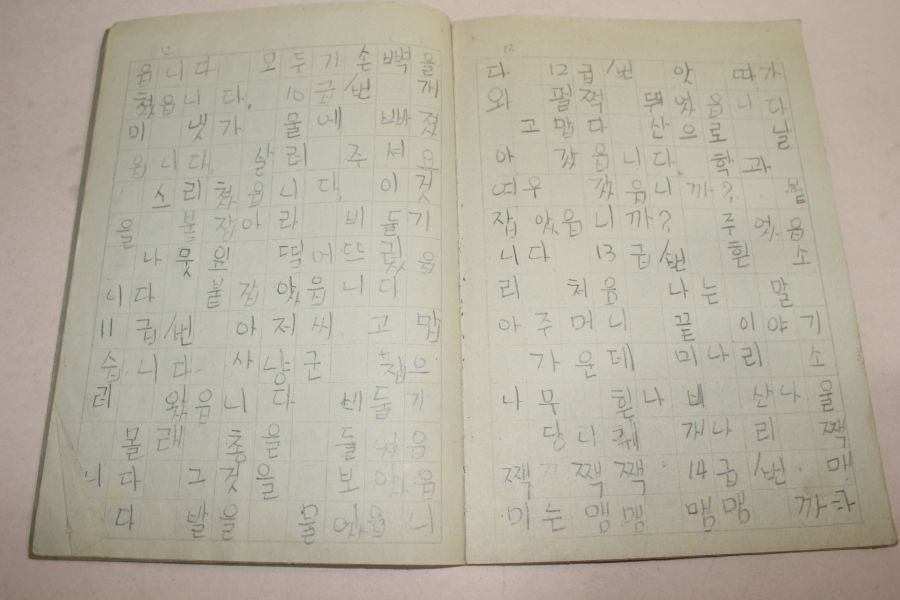 읍니다 모두가 손뼉을
쳤읍니다. 10급/번 개
미 냇가 물에 빠졌
읍니다. 살려 주셔요
스리쳤읍니다. 이것
을 붙잡아라 비둘기
나뭇잎 떨어뜨렸읍
니다 붙잡았읍니다
11급/번 아저씨 고맙
습니다. 사냥군 쫓으
러 왔읍니다 비둘기
몰래 총을 들었읍
니다 그것을 보았읍
다 발을 물었읍니
다 12급/번 앗 따가
와 펄쩍 뛰었읍니다
고맙다 산으로 날
아 갔읍니다. 학과
여우 갔읍니까? 붙
잡았읍니까? 주었읍
니다 13급/번 흰 소
리 처음 나는 말
아주머니 끝 이야기
가운데 미나리 소
나무 흰나비 산나물
당나귀 개나리 짹
짹 짹짹 14급/번 매
미는 맴맴 맴맴 까는